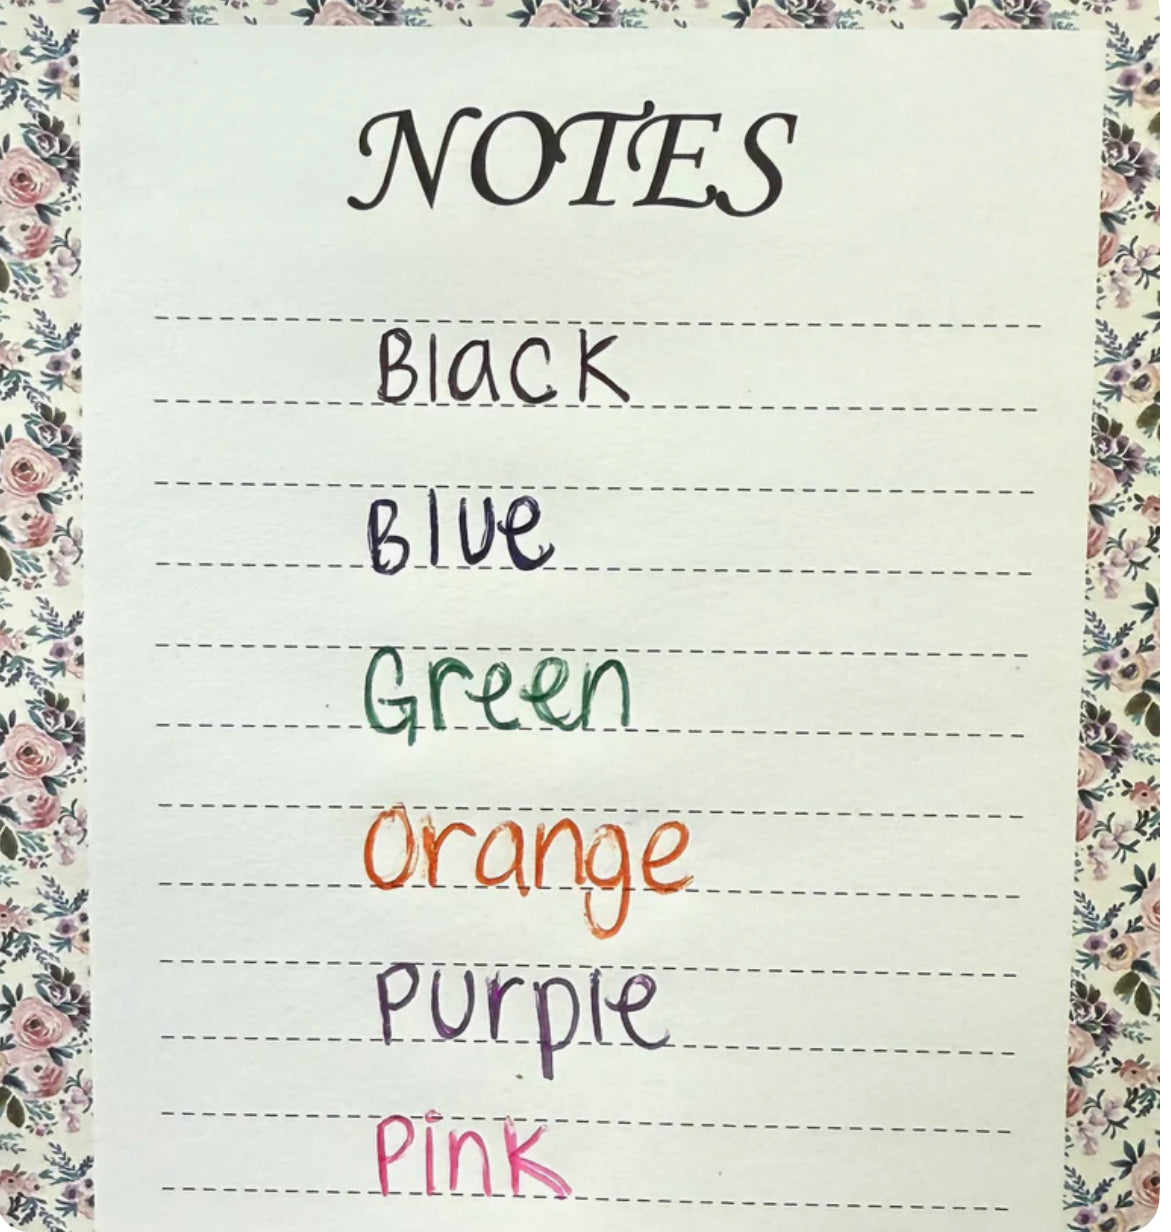 NOTES
Black
Blue
Green
Orange
Purple
Pink